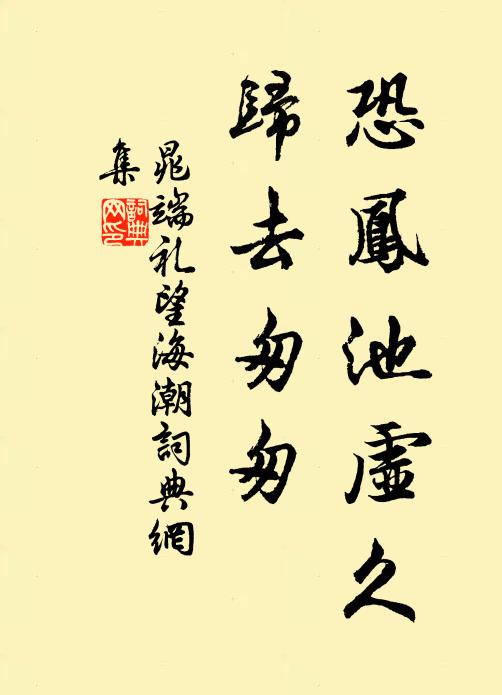 恐鳳池虛久
歸去匆匆
晁端礼望海潮詞典網
集
詞典
网印